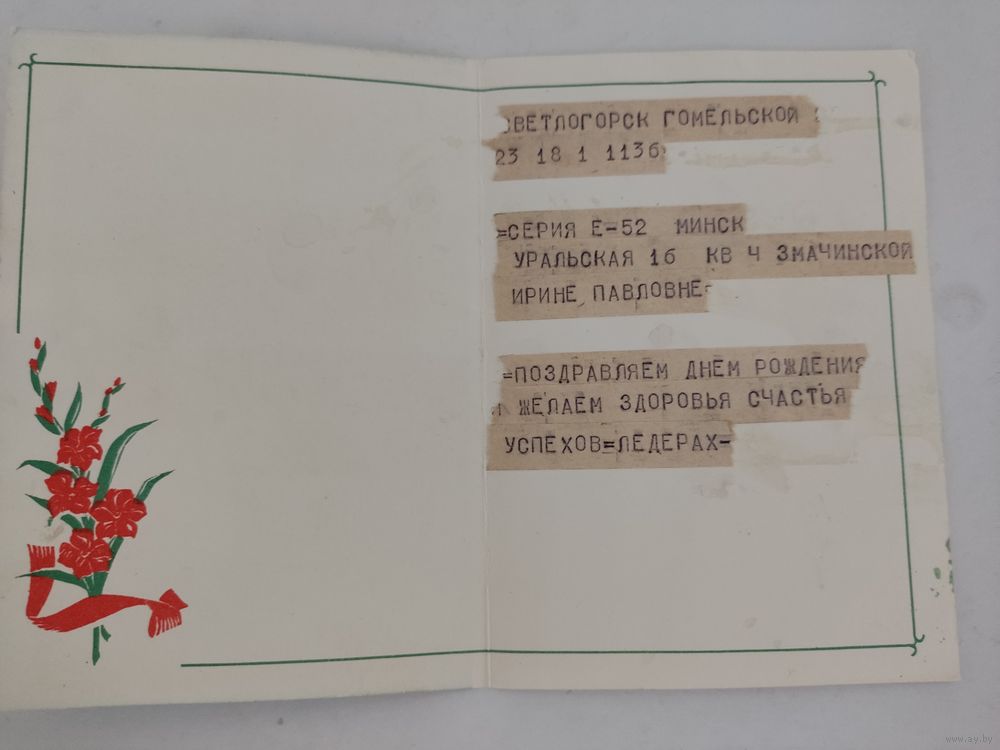 СВЕТЛОГОРСК ГОМЕЛЬСКОЙ
23 18 1 1136
=СЕРИЯ Е-52 МИНСК
УРАЛЬСКАЯ 16 КВ Ч ЗМАЧИНСКОЙ
ИРИНЕ ПАВЛОВНЕ=
=ПОЗДРАВЛЯЕМ ДНЕМ РОЖДЕНИЯ
И ЖЕЛАЕМ ЗДОРОВЬЯ СЧАСТЬЯ
УСПЕХОВ=ЛЕДЕРАХ-
www.ay.by